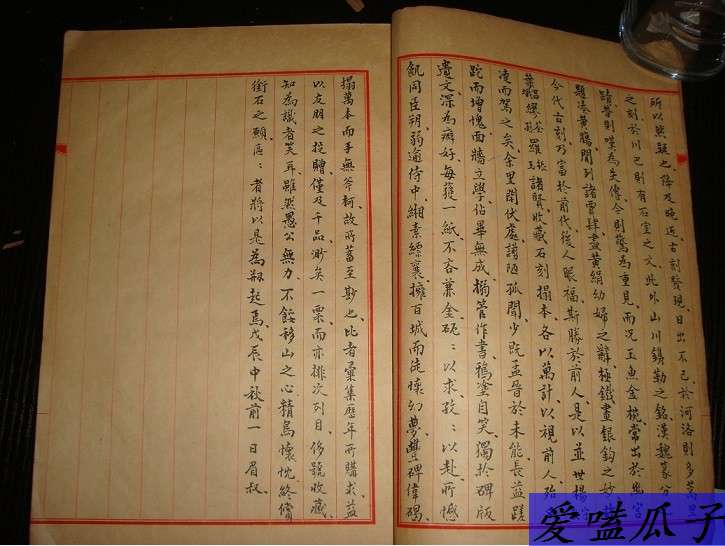 所以無疑之降及晚近古刻發現日出不已於河洛則多萬里
之刻於川巴則有石室之文此外山川鐫勒之銘漢魏篆分
蹟昔則嘆為矣傳今則驚為重見而況玉魚金椀常出於幽宮
題湊黃腸閒到諸賈肆盡黃絹幼婦之辭極鐵畫銀鈎之妙
今代古刻乃富於前代後人眼福斯勝於前人是以並世楊守
葉昌繆荃孫羅振玉諸賢收藏石刻搨本各以萬計以視前人殆
凌而駕之矣余里閈伏處謭陋孤聞少既孟晉於未能長益蹉
跎而增愧面牆立學佔畢無成搦管作書鴉塗自笑獨於碑版
遺文深為癖好每獲一紙不啻兼金矻矻以求孜孜以赴所憾
飢同臣朔弱逾侍中緗素縹囊擁百城而徒懷幻夢豐碑偉碣
搨萬本而手無斧柯故所蓄至尠也比者彙集歷年所購求益
以友朋之投贈僅及千品渺矣一粟而亦排次列目侈號收藏
知為識者笑耳雖然愚公無力不餒移山之心精烏懷忱終償
銜石之願區區者將以是為朔起焉戊辰中秋前一日眉叔
爱嗑瓜子